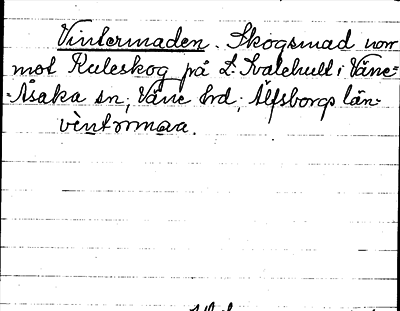 Vintermaden. Skogsmad norr
mot Kuleskog på L. Kvalehult i Väne-
-Åsaka sn, Väne hrd, Älfsborgs län.
vintərmaa.